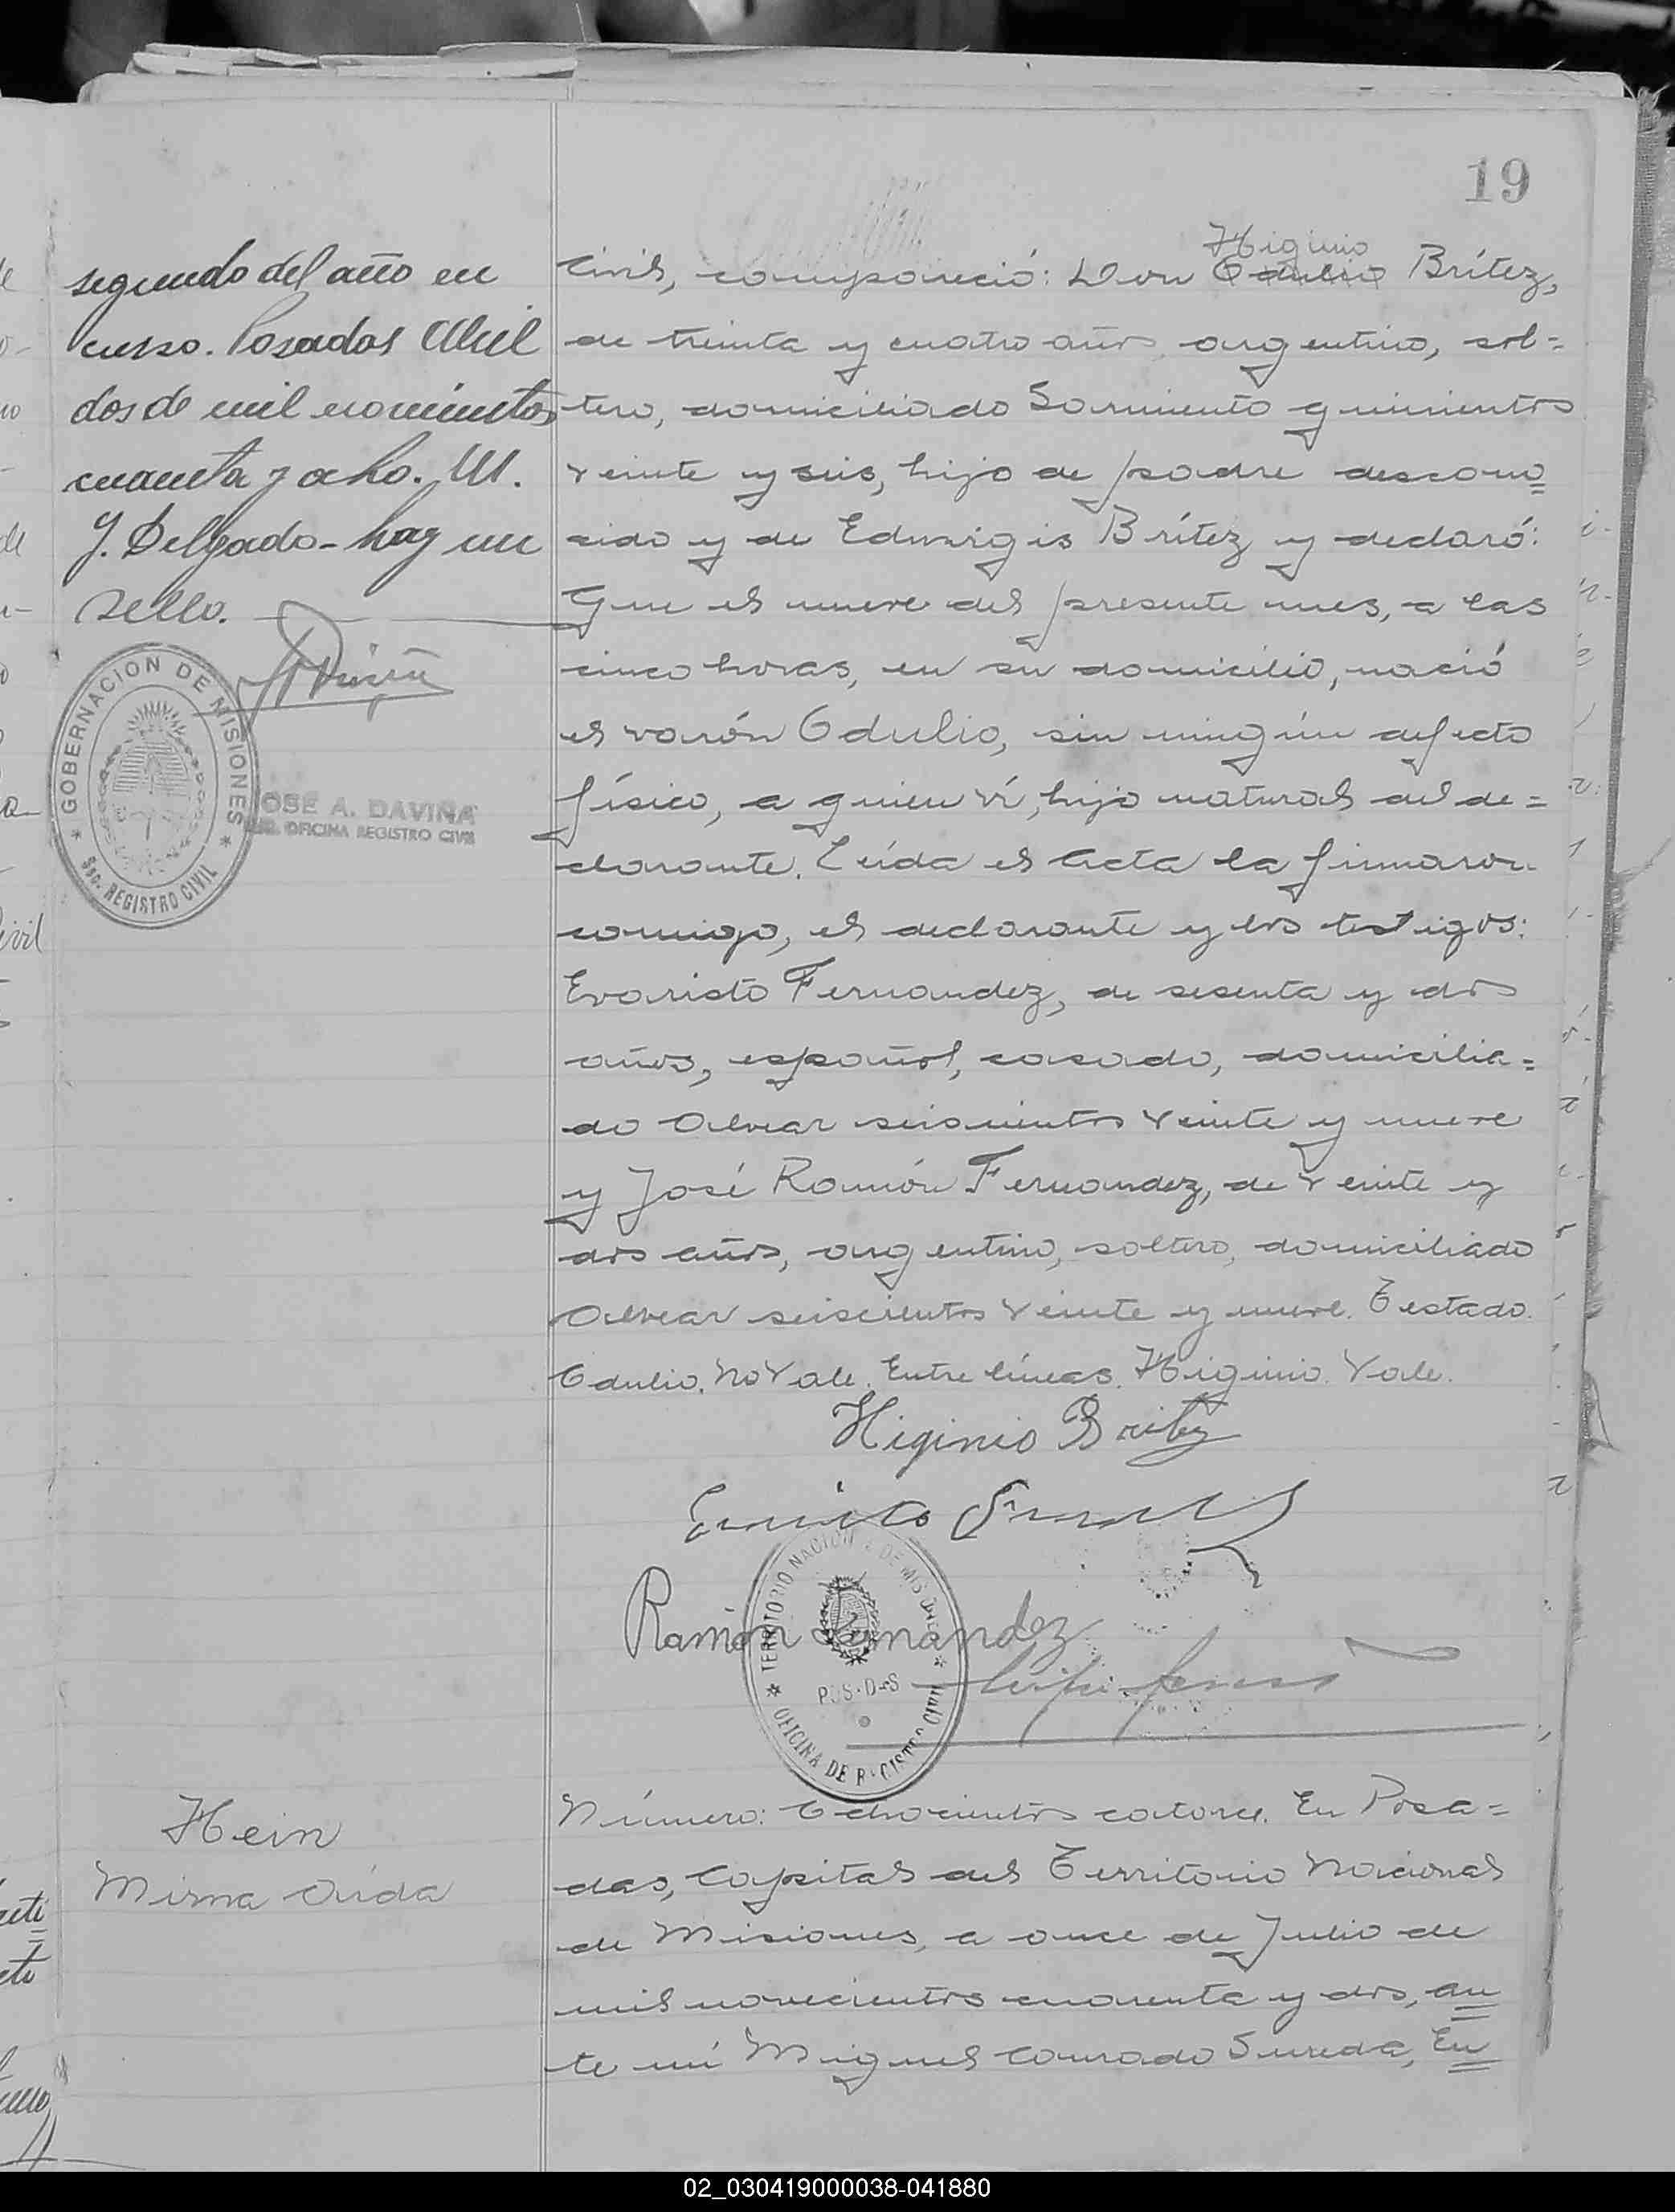 19
segundo del año en
curso. Posadas Abril
dos de mil novecientos
cuarenta y ocho. M.
J. Delgado - hay un
sello.
GOBERNACION DE MISIONES
Sec. REGISTRO CIVIL
JOSÉ A. DAVIÑA
OFICINA REGISTRO CIVIL
Higinio
Civil, compareció: Don Odulio Brítez,
de treinta y cuatro años argentino, sol=
tero, domiciliado Sarmiento quinientos
veinte y seis, hijo de padre descono
cido y de Eduvigis Brítez y declaró:
Que el nueve del presente mes, a las
cinco horas, en su domicilio, nació
el varón Odulio, sin ningún defecto
físico, a quien ví, hijo natural del de=
clarante. Leída el Acta la firmaron
conmigo, el declarante y los testigos:
Evaristo Fernandez, de sesenta y dos
años, español, casado, domicilia=
do Alvear seiscientos veinte y nueve
y José Ramón Fernandez, de veinte y
dos años, argentino, soltero, domiciliado
Alvear seiscientos veinte y nueve. Testado.
Odulio. No Vale. Entre líneas. Higinio. Vale.
Higinio Britez
Ramón Fernandez
TERRITORIO NACIONAL DE MISIONES
POSADAS
OFICINA DE REGISTRO CIVIL
Hein
Mirna Aída
Número: Ochocientos catorce. En Posa=
das, Capital del Territorio Nacional
de Misiones, a once de Julio de
mil novecientos cuarenta y dos, an
te mí Miguel Conrado Sureda, En
02_030419000038-041880